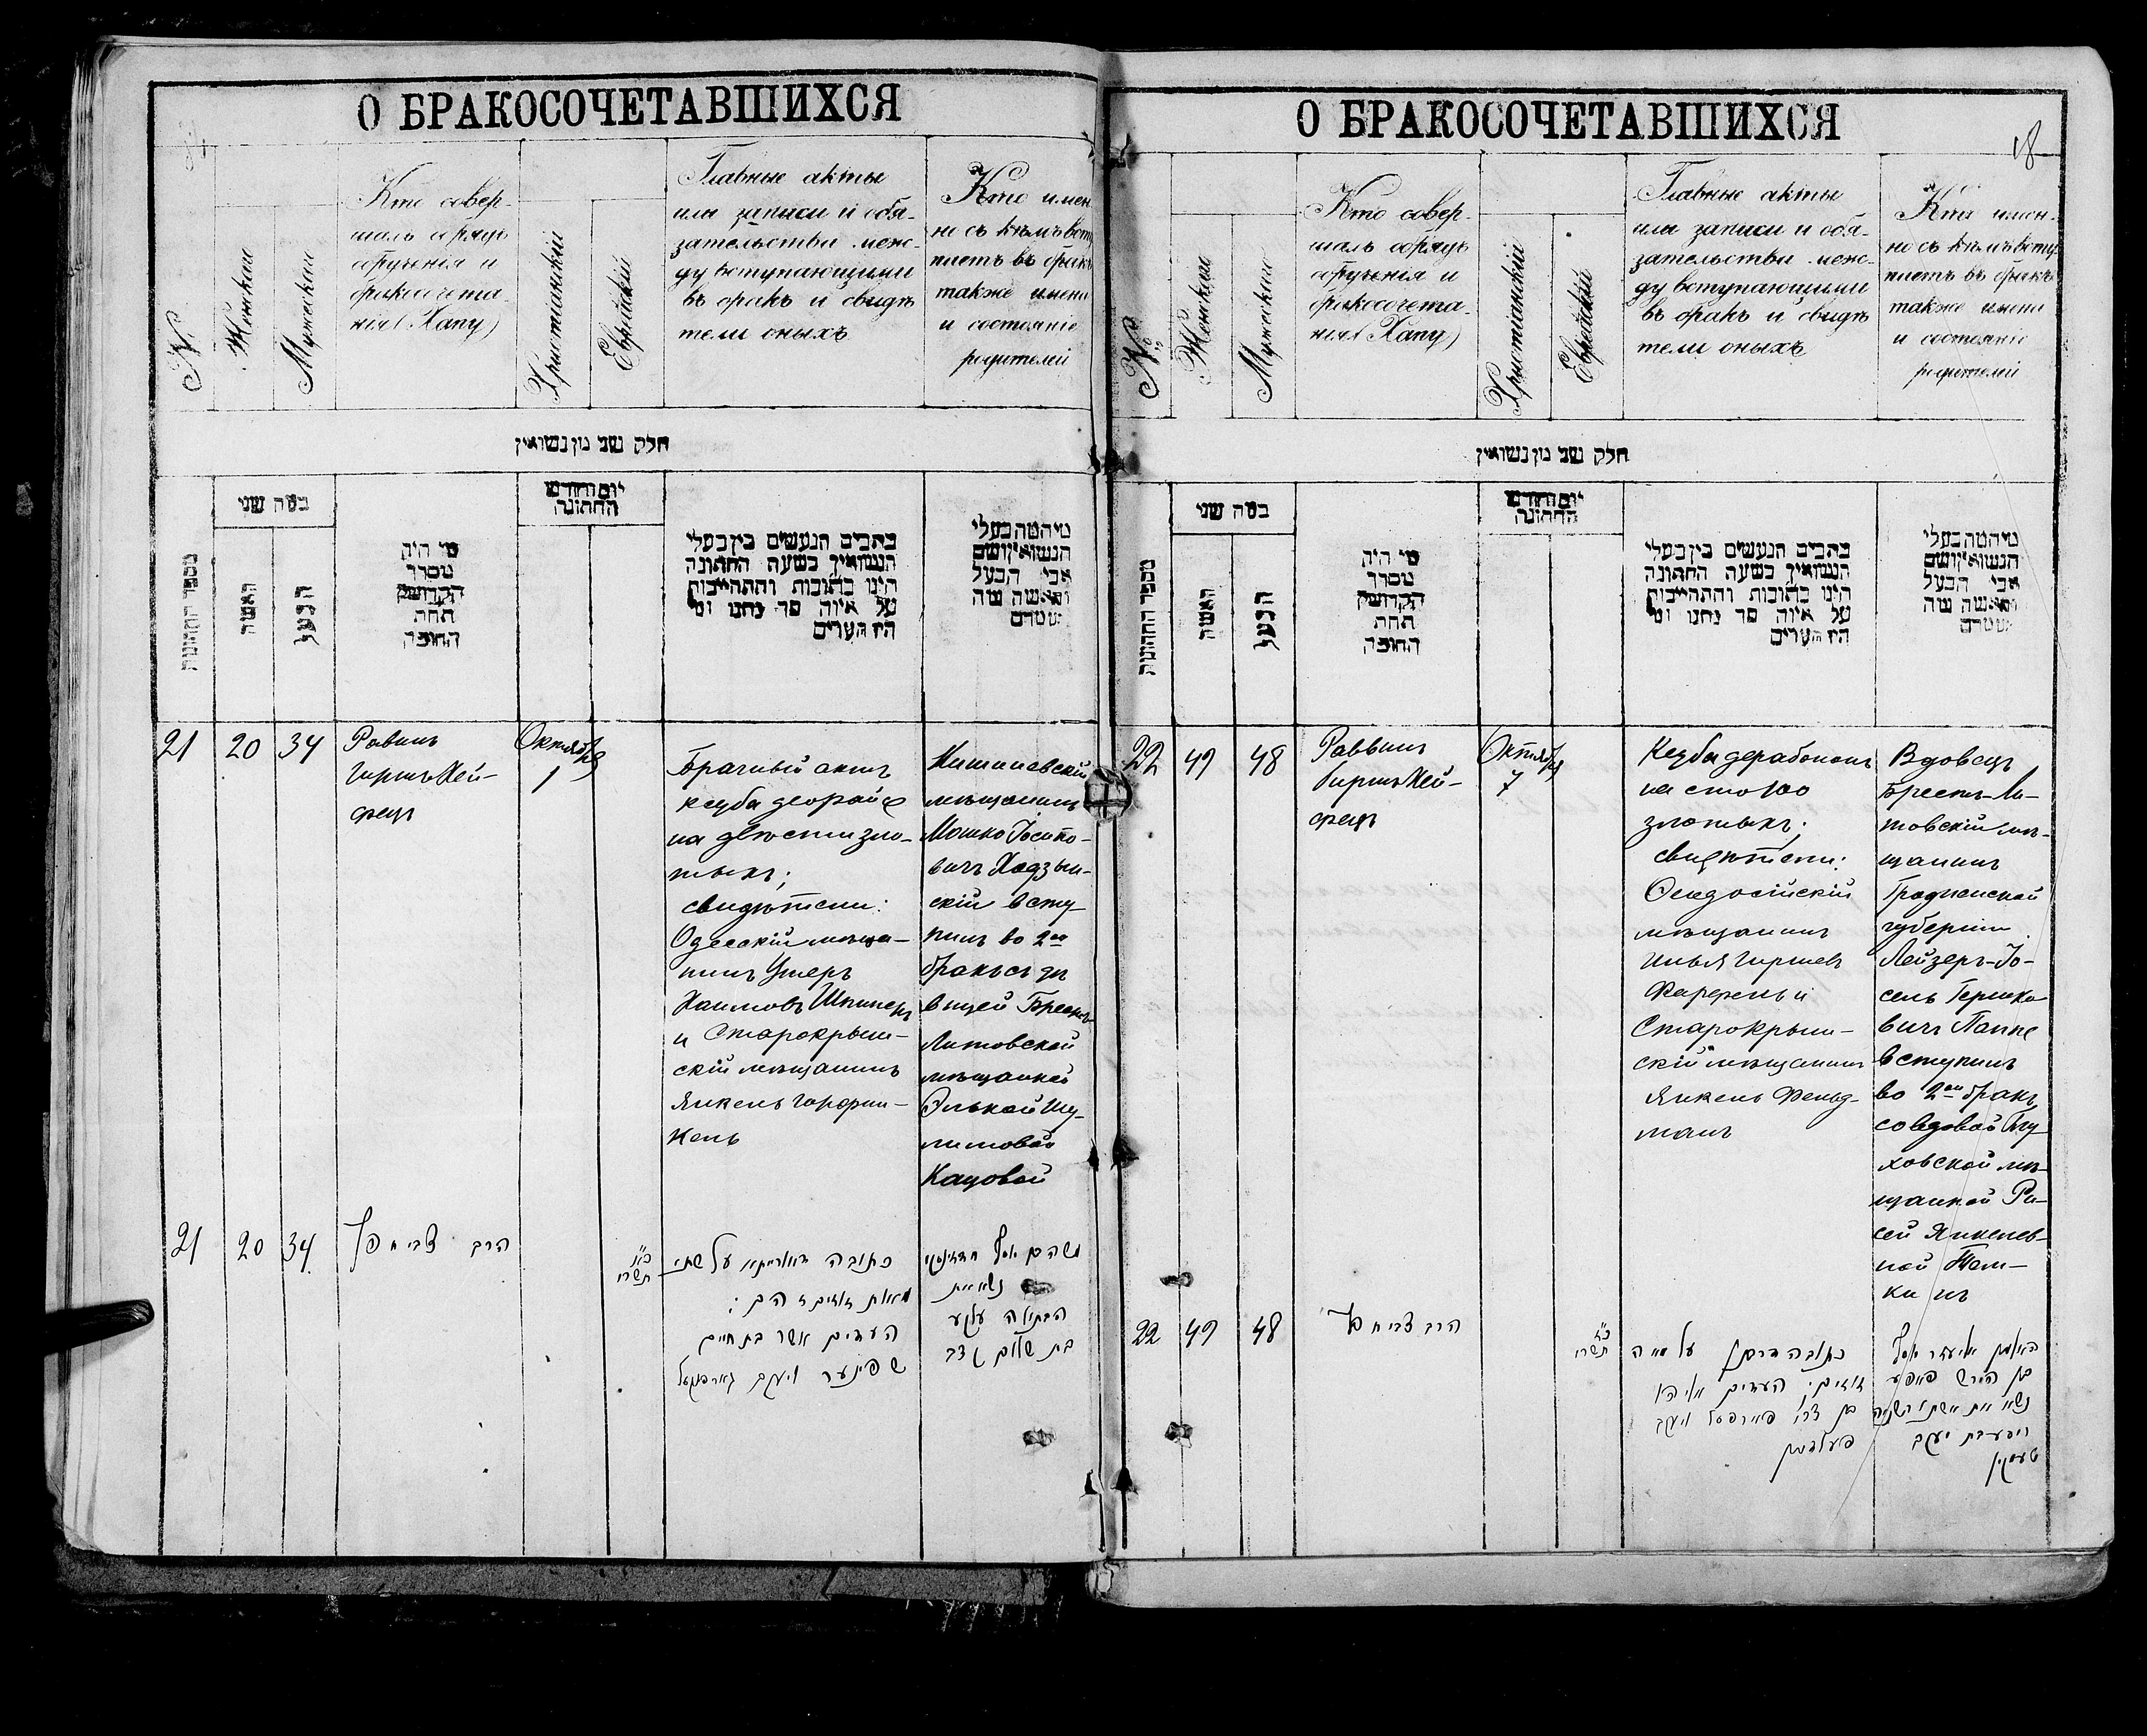 О БРАКОСОЧЕТАВШИХСЯ
№
Женская
Мужеская
Кто совер-
шалъ обрядъ
обрученія и
бракосочета-
нія (Хапу)
Христіанскій
Еврейскій
Главные акты
или записи и обя-
зательства меж-
ду вступающими
въ бракъ и свидѣ
тели оныхъ
Кто имен
но съ кѣмъ всту
паетъ въ бракъ
также имена
и состояніе
родителей
חלק שני מן נשואין
מספר החתונות
כמה שני
האשה
הבעל
מי היה
מסדר
הקדושין
תחת
החופה
יום וחודש
החתונה
כתבים הנעשים בין בעלי
הנשואין בשעה החתונה
היינו כתובות והתחייבות
על איזה סך נתנו ומי
היו העדים
מי המה בעלי
הנשואין ושם
אבי הבעל
והאשה מה
21
20
34
Равинъ
Гиршъ Хей-
фецъ
Октября
1
Брачный актъ
кецуба деорайсе
на двѣсти зло-
тыхъ;
свидѣтели:
Одесскій мѣща-
нинъ Ушеръ
Хаимовъ Шпинеръ
и Старокрым-
скій мѣщанинъ
Янкель Горфин-
кель
Кишиневскій
мѣщанинъ
Мошко Іосипо-
вичъ Ходзин-
скій всту-
пилъ во 2ой
бракъ съ дѣ
вицей Брестъ-
Литовской
мѣщанкой
Элькой Шу-
лимовой
Кацовой
21
20
34
הרב צבי חפץ
כ״א
תשרי
כתובה דאורייתא על שתי
מאות זוזים
העדים אשר בת חיים
שפינער ויעקב גארפינקעל
משה בן יוסף
נשא את
הבתולה עלקע
בת שלום כצב
О БРАКОСОЧЕТАВШИХСЯ
18
№
Женская
Мужеская
Кто совер-
шалъ обрядъ
обрученія и
бракосочета-
нія (Хапу)
Христіанскій
Еврейскій
Главные акты
или записи и обя-
зательства меж-
ду вступающими
въ бракъ и свидѣ
тели оныхъ
Кто имен-
но съ кѣмъ всту-
паетъ въ бракъ
также имена
и состояніе
родителей
חלק שני מן נשואין
מספר החתונות
כמה שני
האשה
הבעל
מי היה
מסדר
הקדושין
תחת
החופה
יום וחודש
החתונה
כתבים הנעשים בין בעלי
הנשואין בשעה החתונה
היינו כתובות והתחייבות
על איזה סך נתנו ומי
היו העדים
מי המה בעלי
הנשואין ושם
אבי הבעל
והאשה מה
22
49
48
Раввинъ
Гиршъ Хей-
фецъ
Октября
7
Кецуба дерабононъ
на стою
злотыхъ;
свидѣтели:
Ѳеодосійскій
мѣщанинъ
Илья Гиршев
Фарфель и
Старокрым-
скій мѣщанинъ
Янкель Фельд-
манъ
Вдовецъ
Брестъ-Ли-
товскій мѣ-
щанинъ
Гродненской
губерніи
Лейзеръ-Іо-
сель Гершко-
вичъ Паппе
вступилъ
во 2ой бракъ
со вдовой Глу-
ховской мѣ-
щанкой Ри-
сей Янкелев-
ной Тем-
кинъ
22
49
48
הרב צבי חפץ
כ״ז
תשרי
כתובה דרבנן על מאה
זוזים; העדים אליהו
בן צבי פארפעל ויעקב
פעלדמאן
האלמן אליעזר יוסף
בן הירש פאפע
נשא את אשתו השניה
ריסע בת יעקב
טעמקין